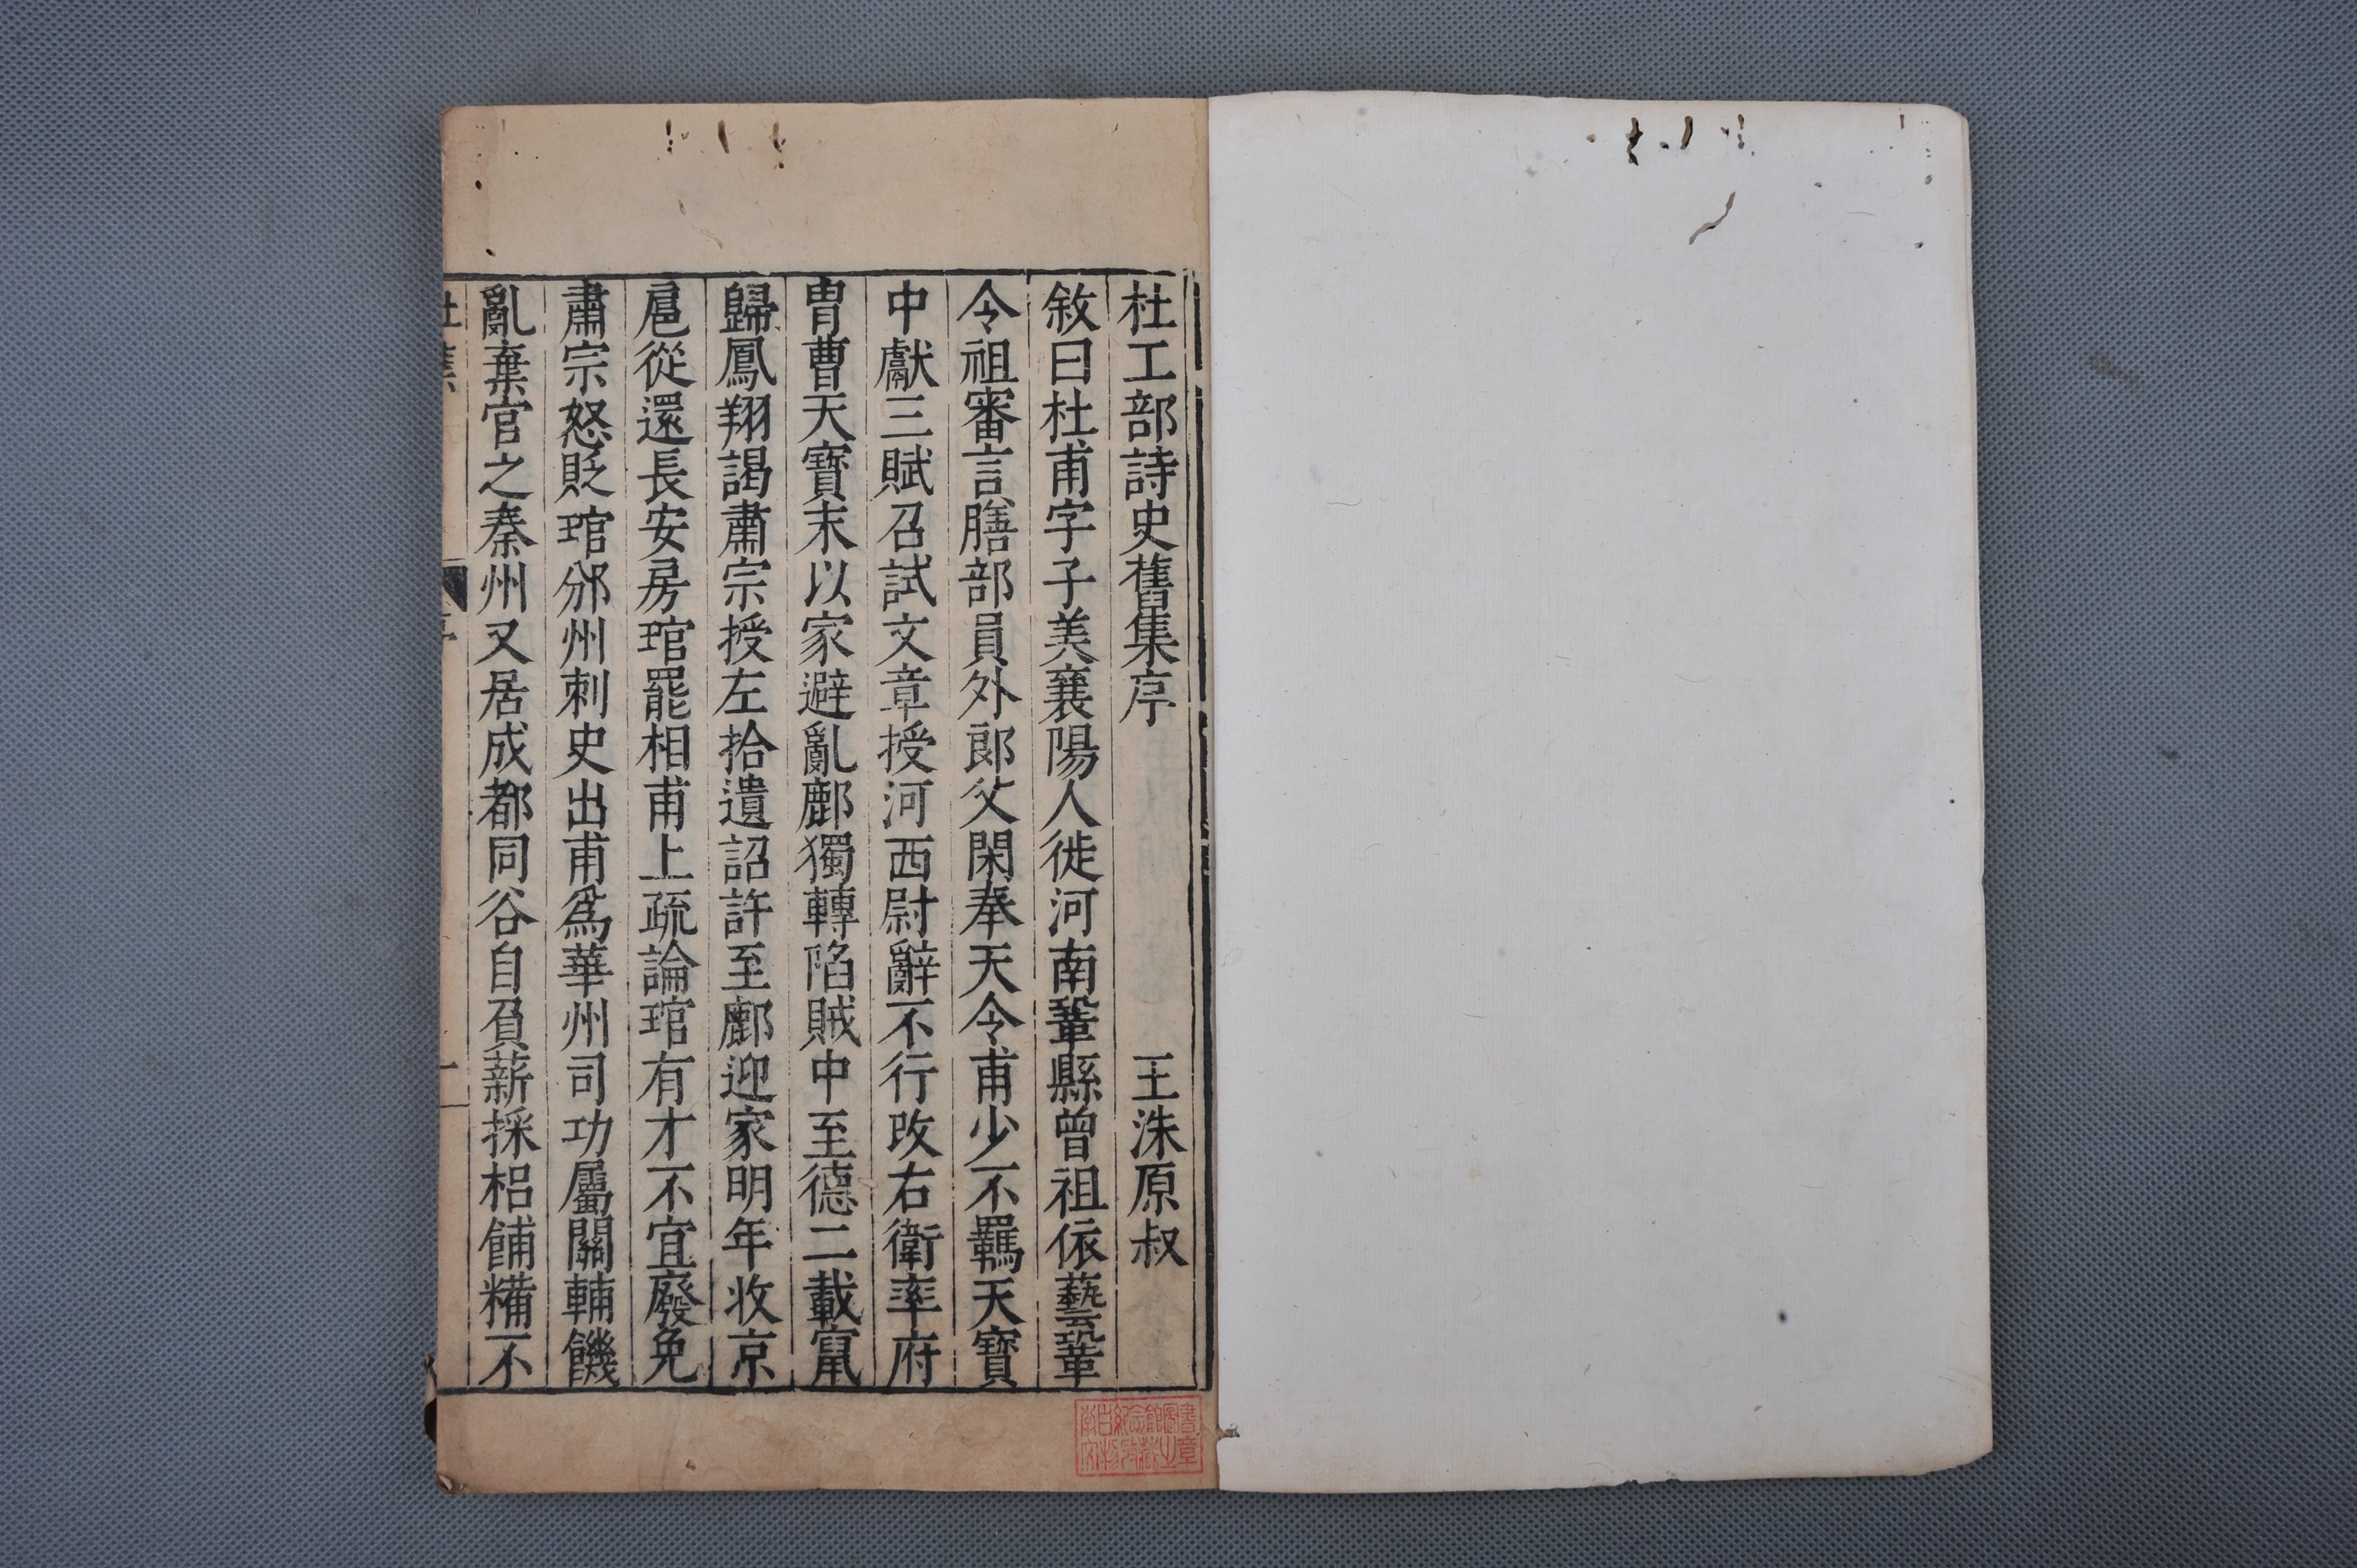 杜工部詩史舊集序 王洙原叔
敘曰杜甫字子美襄陽人徙河南鞏縣曾祖依藝鞏
令祖審言膳部員外郎父閑奉天令甫少不羈天寶
中獻三賦召試文章授河西尉辭不行改右衛率府
胄曹天寶末以家避亂鄜獨轉陷賊中至德二載竄
歸鳳翔謁肅宗授左拾遺詔許至鄜迎家明年收京
扈從還長安房琯罷相甫上疏論琯有才不宜廢免
肅宗怒貶琯邠州刺史出甫爲華州司功屬關輔饑
亂棄官之秦州又居成都同谷自負薪採梠餔糒不
杜集 序 一